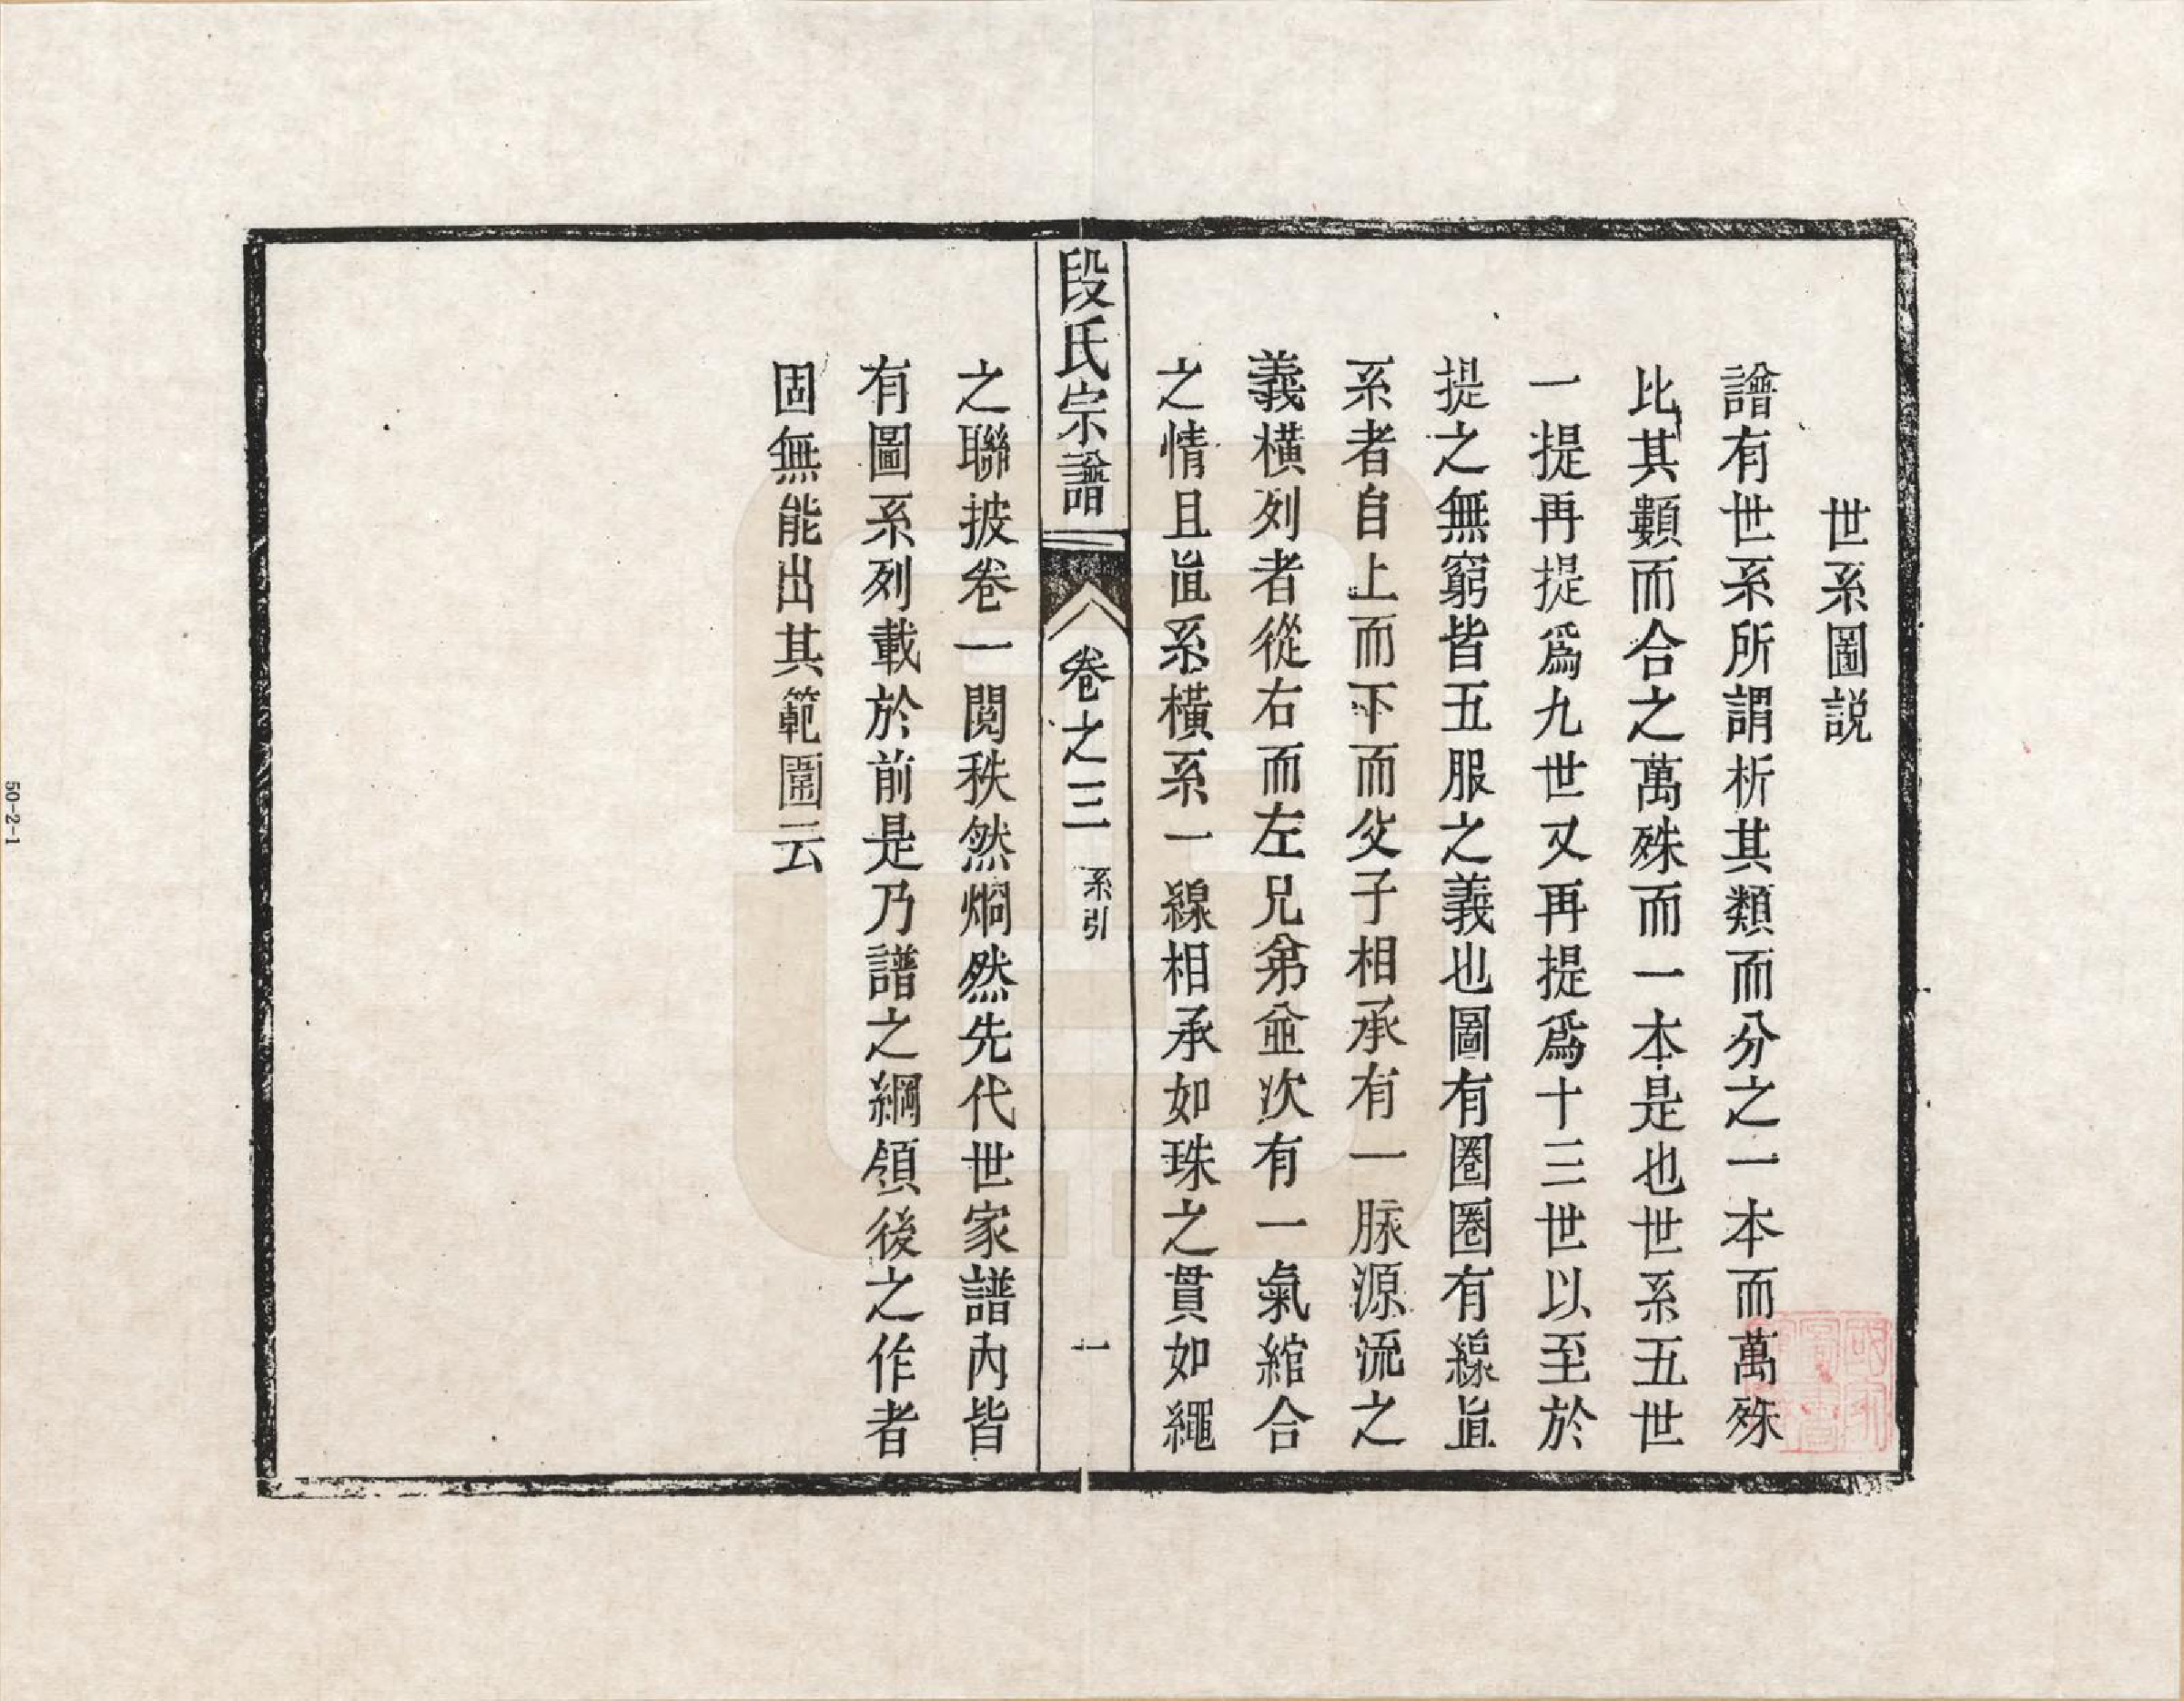 世系圖説
譜有世系所謂析其類而分之一本而萬殊
比其類而合之萬殊而一本是也世系五世
一提再提爲九世又再提爲十三世以至於
提之無窮皆五服之義也圖有圈圈有線直
系者自上而下而父子相承有一脉源流之
義橫列者從右而左兄弟並次有一氣綰合
之情且直系橫系一線相承如珠之貫如繩
段氏宗譜 卷之三 系引 一
之聯披卷一閱秩然烱然先代世家譜內皆
有圖系列載於前是乃譜之綱領後之作者
固無能出其範圍云
50-2-1